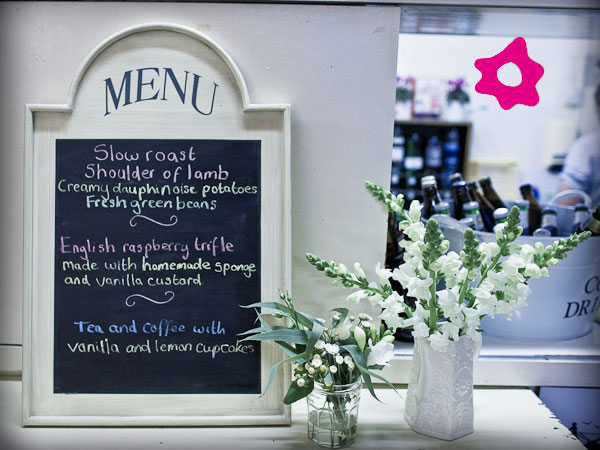 MENU
Slow roast
Shoulder of lamb
Creamy dauphinoise potatoes
Fresh green beans
English raspberry trifle
made with homemade sponge
and vanilla custard
Tea and coffee with
vanilla and lemon cupcakes